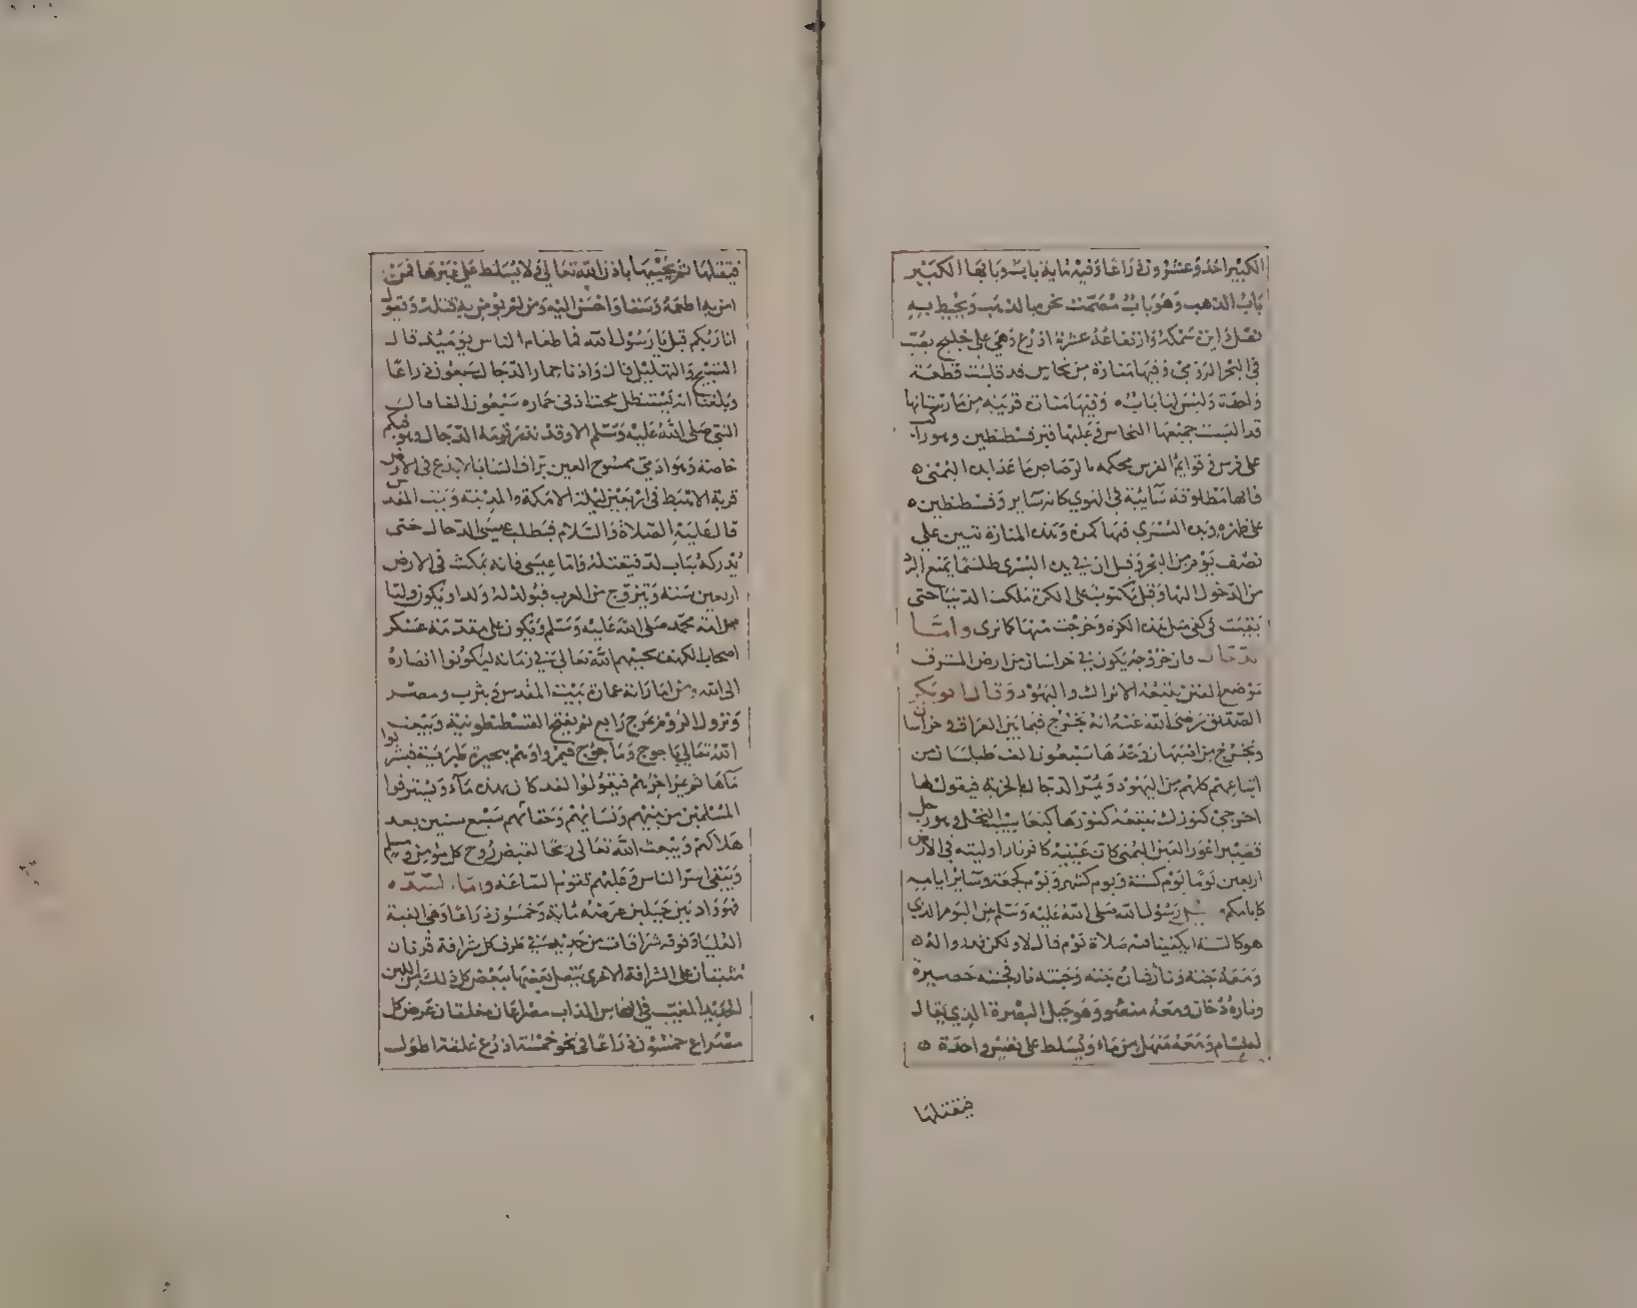 الكبير احد وعشرون ذراعا وفيه مائة باب وبابها الكبير
باب الذهب وهو باب مصمت نحو بالذهب ويحيط به
وارتفاعه عشرة اذرع وهي على خليج يصب
في البحر الرومي وفيها منارة من نحاس قد قلبت قطعة
واحدة وليس لها باب وفيها منارة قريبة من مارستانها
قد البست جميعها النحاس وعليها قبر قسطنطين وهو راكب
على فرس وقوائم الفرس محكمه بالرصاص ما عدا يده اليمنى
فانها مطلوقة سايبة في الهوى كانه ساير وقسطنطين
على ظهره ويده اليسرى فيها كرة وهذه المنارة تبين على
نصف يوم من البحر وقيل ان في يده اليسرى طلسما يمنع
من الدخول اليها وقيل مكتوب على الكرة ملكت الدنيا حتى
بقيت في كفي مثل هذه الكره وخرجت منها كما ترى واما
الدجال فان خروجه يكون في خراسان من ارض المشرق
موضع الفتن يتبعه الاتراك واليهود وقال ابو بكر
الصديق رضي الله عنه انه يخرج فيما بين العراق وخراسان
ويخرج من اصبهان وحدها سبعون الف طيلسان من
اتباعهم كلهم من اليهود ويمر الدجال بالخربة فيقول لها
اخرجي كنوزك فتتبعه كنوزها كيعاسيب النحل وهو رجل
قصير اعور العين اليمنى كان عينيه كافر نار اوليته في الارض
اربعين يوما يوم كسنة ويوم كشهر ويوم كجمعة وساير ايامه
كايامكم قيل يا رسول الله صلى الله عليه وسلم هذا اليوم الذي
هو كالسنة ايكفينا فيه صلاة يوم قال لا ولكن قدروا له
ومعه جنة ونار فنار جنه وجنته نار فجنته خضيرة
وناره دخان ومعه وهو جبل البصرة الذي يقال
له سنام ومعه منهل من ماء ويسلط على نفس واحدة
فيقتلها
فيقتلها ثم يحييها باذن الله تعالى ولا يسلط على غيرها فمن
امن به اطعمه وسقاه واحسن اليه ومن لم يؤمن به قتله ويقول
انا ربكم قيل يا رسول الله فما طعام الناس يومئذ قال
التسبيح والتهليل قال واذنا حمار الدجال سبعون ذراعا
وبلغنا انه يستظل تحت اذني حماره سبعون الفا قال
النبي صلى الله عليه وسلم الا وقد نذر قومه الدجال وهو فيكم
خاصة وهو ادمي ممسوح العين براق الثنايا لا يدع في الارض
قرية الا هبط في اربعين ليلة الا مكة والمدينة وبيت المقدس
قال عليه الصلاة والسلام فيطلب عيسى الدجال حتى
يدركه بباب لد فيقتله واما عيسى فانه يمكث في الارض
اربعين سنة ويتزوج من العرب فيولد له ولد او يكون وليا
من امة محمد صلى الله عليه وسلم ويكون على مقدمة عسكر
اصحاب الكهف يحييهم الله تعالى في زمانه ليكونوا انصاره
الى الله ومن اماراته عمارة بيت المقدس ويثرب ومصر
ونزول الروم بمرج رابع ثم يفتح القسطنطونية ويبعث
الله تعالى ياجوج وماجوج فيمر اولهم ببحيرة طبرية فيشربوا
ماها ثم يمر اخرهم فيقولوا لقد كان بهذه ماء ويستوقدوا
المسلمين من قسيهم ونشابهم سبع سنين بعد
هلاكهم ويبعث الله تعالى ريحا لقبض روح كل مؤمن ومسلم
ويبقى اشرار الناس وعليهم تقوم الساعة واما السد
فهو واد بين جبلين عرضه ماية وخمسون ذراعا وهي العتبة
العليا وفوقه شرافات من حديد في طرف كل شرافة قرنان
على الشرافة الاخرى يتصل بعضها ببعض كل ذلك من اللبن
الحديد المغيب في النحاس المذاب مصراعان مغلقان عرض كل
مصراع خمسون ذراعا في نحو خمسة اذرع غلقه اطول